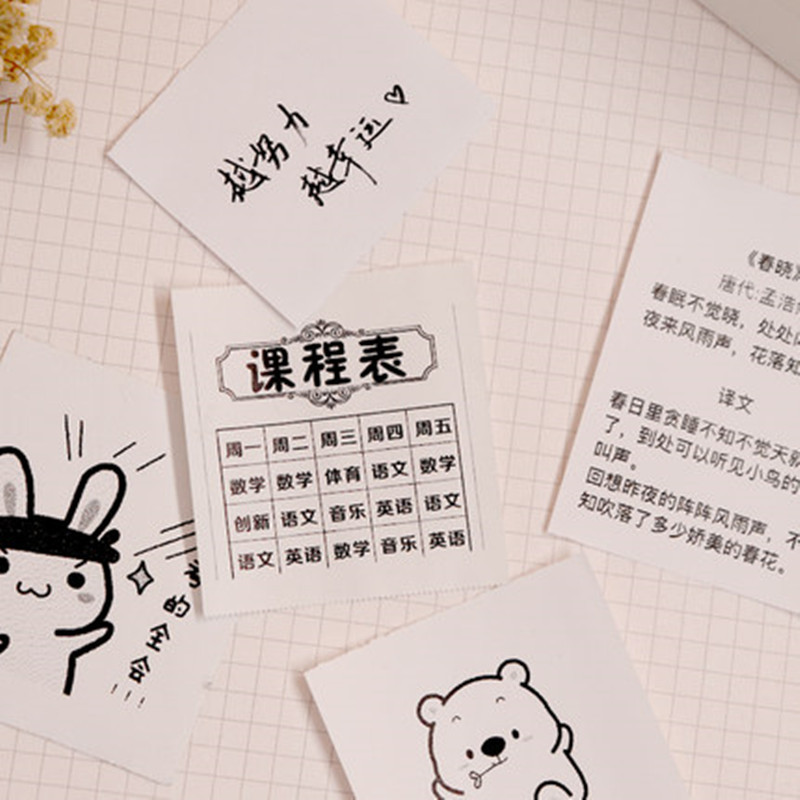 越努力
越幸运
课程表
周一 周二 周三 周四 周五
数学 数学 体育 语文 数学
创新 语文 音乐 英语 语文
语文 英语 数学 音乐 英语
《春晓》
唐代:孟浩
春眠不觉晓，处处
夜来风雨声，花落知
译文
春日里贪睡不知不觉天
了，到处可以听见小鸟的
叫声。
回想昨夜的阵阵风雨声，不
知吹落了多少娇美的春花。
的全会